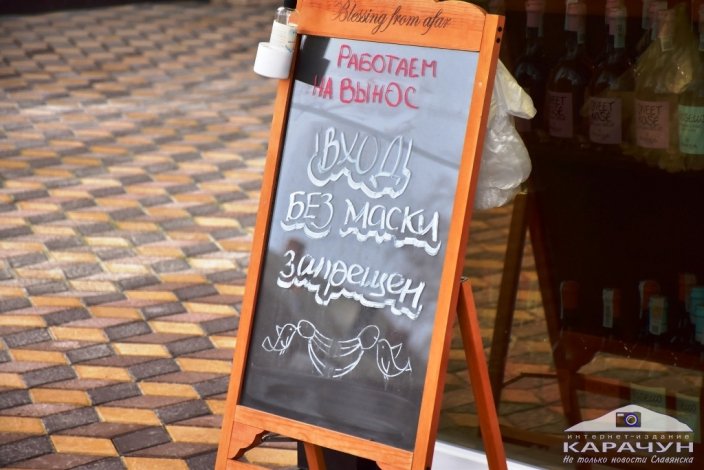 Blessing from afar
РАБОТАЕМ
НА ВЫНОС
!ВХОД!
БЕЗ МАСКИ
ЗАПРЕЩЕН
SWEET
ROSE
интернет-издание
КАРАЧУН
Не только новости Славянска